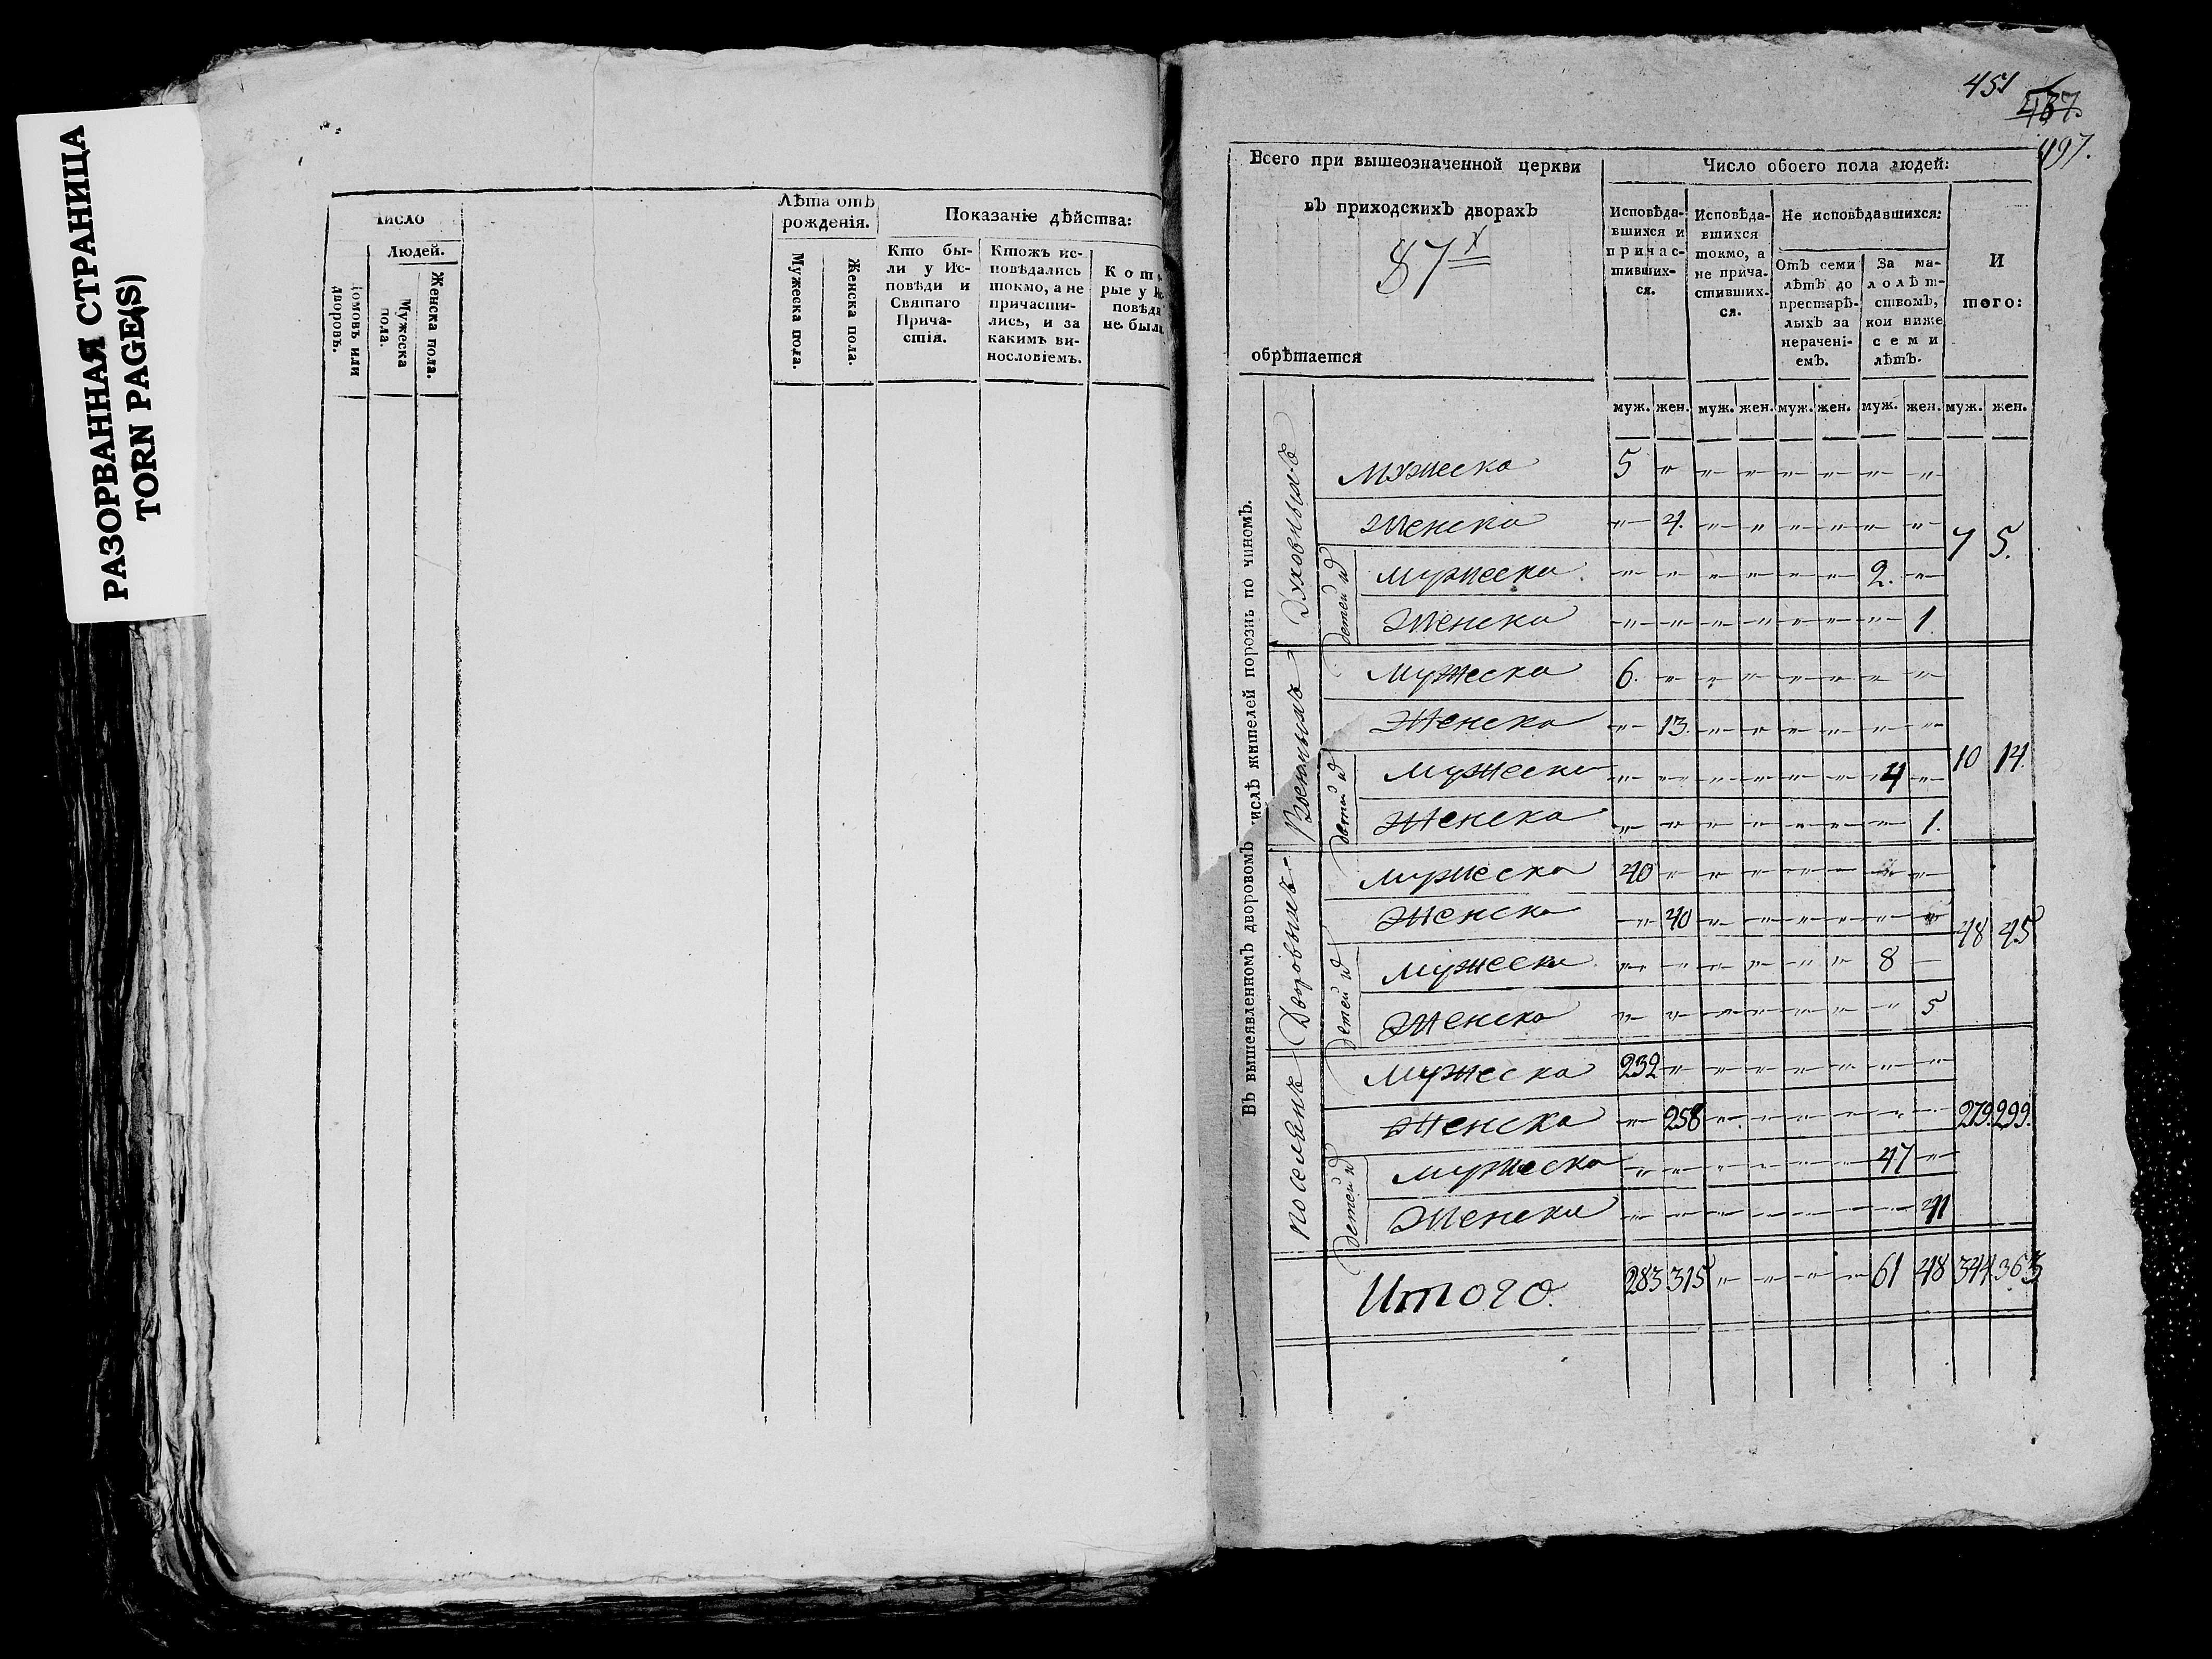 РАЗОРВАННАЯ СТРАНИЦА
TORN PAGE(S)
число
Людей.
домовъ или дворовъ.
Мужеска пола.
Женска пола.
Лѣта отъ
рожденія.
Мужеска пола.
Женска пола.
Показаніе дѣйства:
Кто бы-
ли у Ис-
повѣди и
Святаго
Прича-
стія.
Ктожъ ис-
повѣдались
токмо, а не
причасти-
лись, и за
какимъ ви-
нословіемъ.
Кото-
рые у Ис
повѣди
не были
451
497.
Всего при вышеозначенной церкви
въ приходскихъ дворахъ
87
обрѣтается
Число обоего пола людей:
Исповѣда-
вшихся и
причас-
тивших-
ся.
Исповѣда-
вшихся
токмо, а
не прича-
стивших-
ся.
Не исповѣдавшихся:
Отъ семи
лѣтъ до
престарѣ-
лыхъ за
нерачені-
емъ.
За ма-
лолѣт-
ствомъ,
кои ниже
семи
лѣтъ.
И
того:
муж. жен. муж. жен. муж. жен. муж. жен. муж. жен.
Въ вышеявленномъ дворовомъ числѣ жителей порознь по чиномъ.
Духовныхъ
Мужеска 5 " " " " " " "
Женска " 4. " " " " " "
7 5.
Детей ихъ
Мужеска " " " " " " 2. "
Женска " " " " " " " 1.
Военныхъ
Мужеска 6. " " " " " " "
Женска " 13. " " " " " "
10 14.
Детей ихъ
Мужеска " " " " " " 4 "
Женска " " " " " " " 1.
Дворовыхъ
Мужеска 40 " " " " " " "
Женска " 40 " " " " " "
48 45
Детей ихъ
Мужеска " " " " " " 8 —
Женска " " " " " " " 5
Поселянъ
Мужеска 232 " " " " " " "
Женска " 258 " " " " " "
279. 299.
Детей ихъ
Мужеска " " " " " " 47 "
Женска " " " " " " " 41
Итого. 283 315 " " " " 61 48 344 363